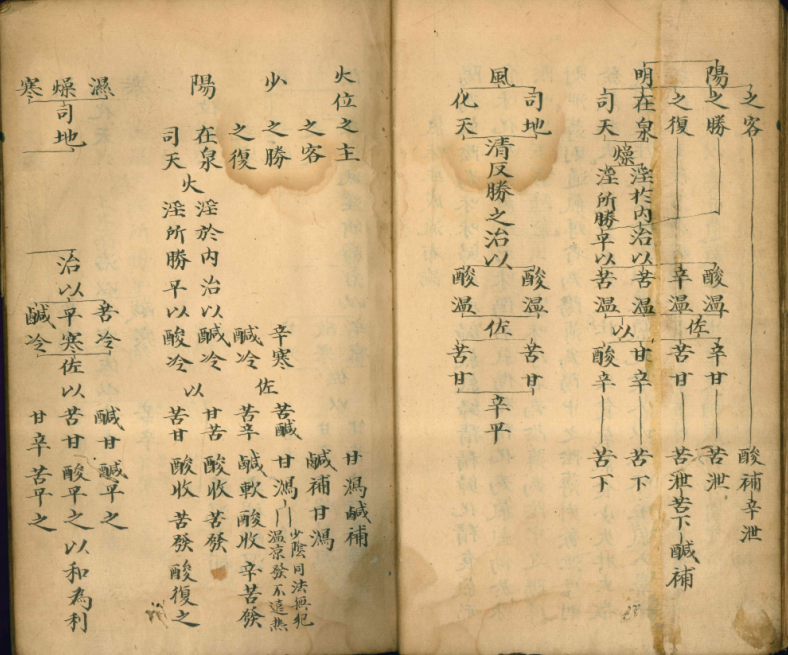 之客 酸補辛泄
陽
之勝 酸溫 辛甘 苦泄
之復 辛溫 佐 苦甘 苦泄苦下鹹補
明
在泉 燥 淫於內治以苦溫 以 甘辛 苦下
司天 淫所勝平以苦溫 酸辛 苦下
司地 酸溫 苦甘
風 清反勝之治以 佐 辛平
化天 酸溫 苦甘
火位之主 甘瀉鹹補
之客 鹹補甘瀉
少
之勝 辛寒 佐 苦鹹 甘瀉
少陰同法無犯
溫涼發不遠熱
之復 鹹冷 苦辛 鹹軟 酸收 辛苦發
陽
在泉 火 淫於內治以鹹冷 以 甘苦 酸收 苦發
司天 淫所勝平以酸冷 苦甘 酸收 苦發 酸復之
濕 苦冷 鹹甘 鹹平之
燥 司地 治以平寒佐以苦甘 酸平之以和為利
寒 鹹冷 甘辛 苦平之